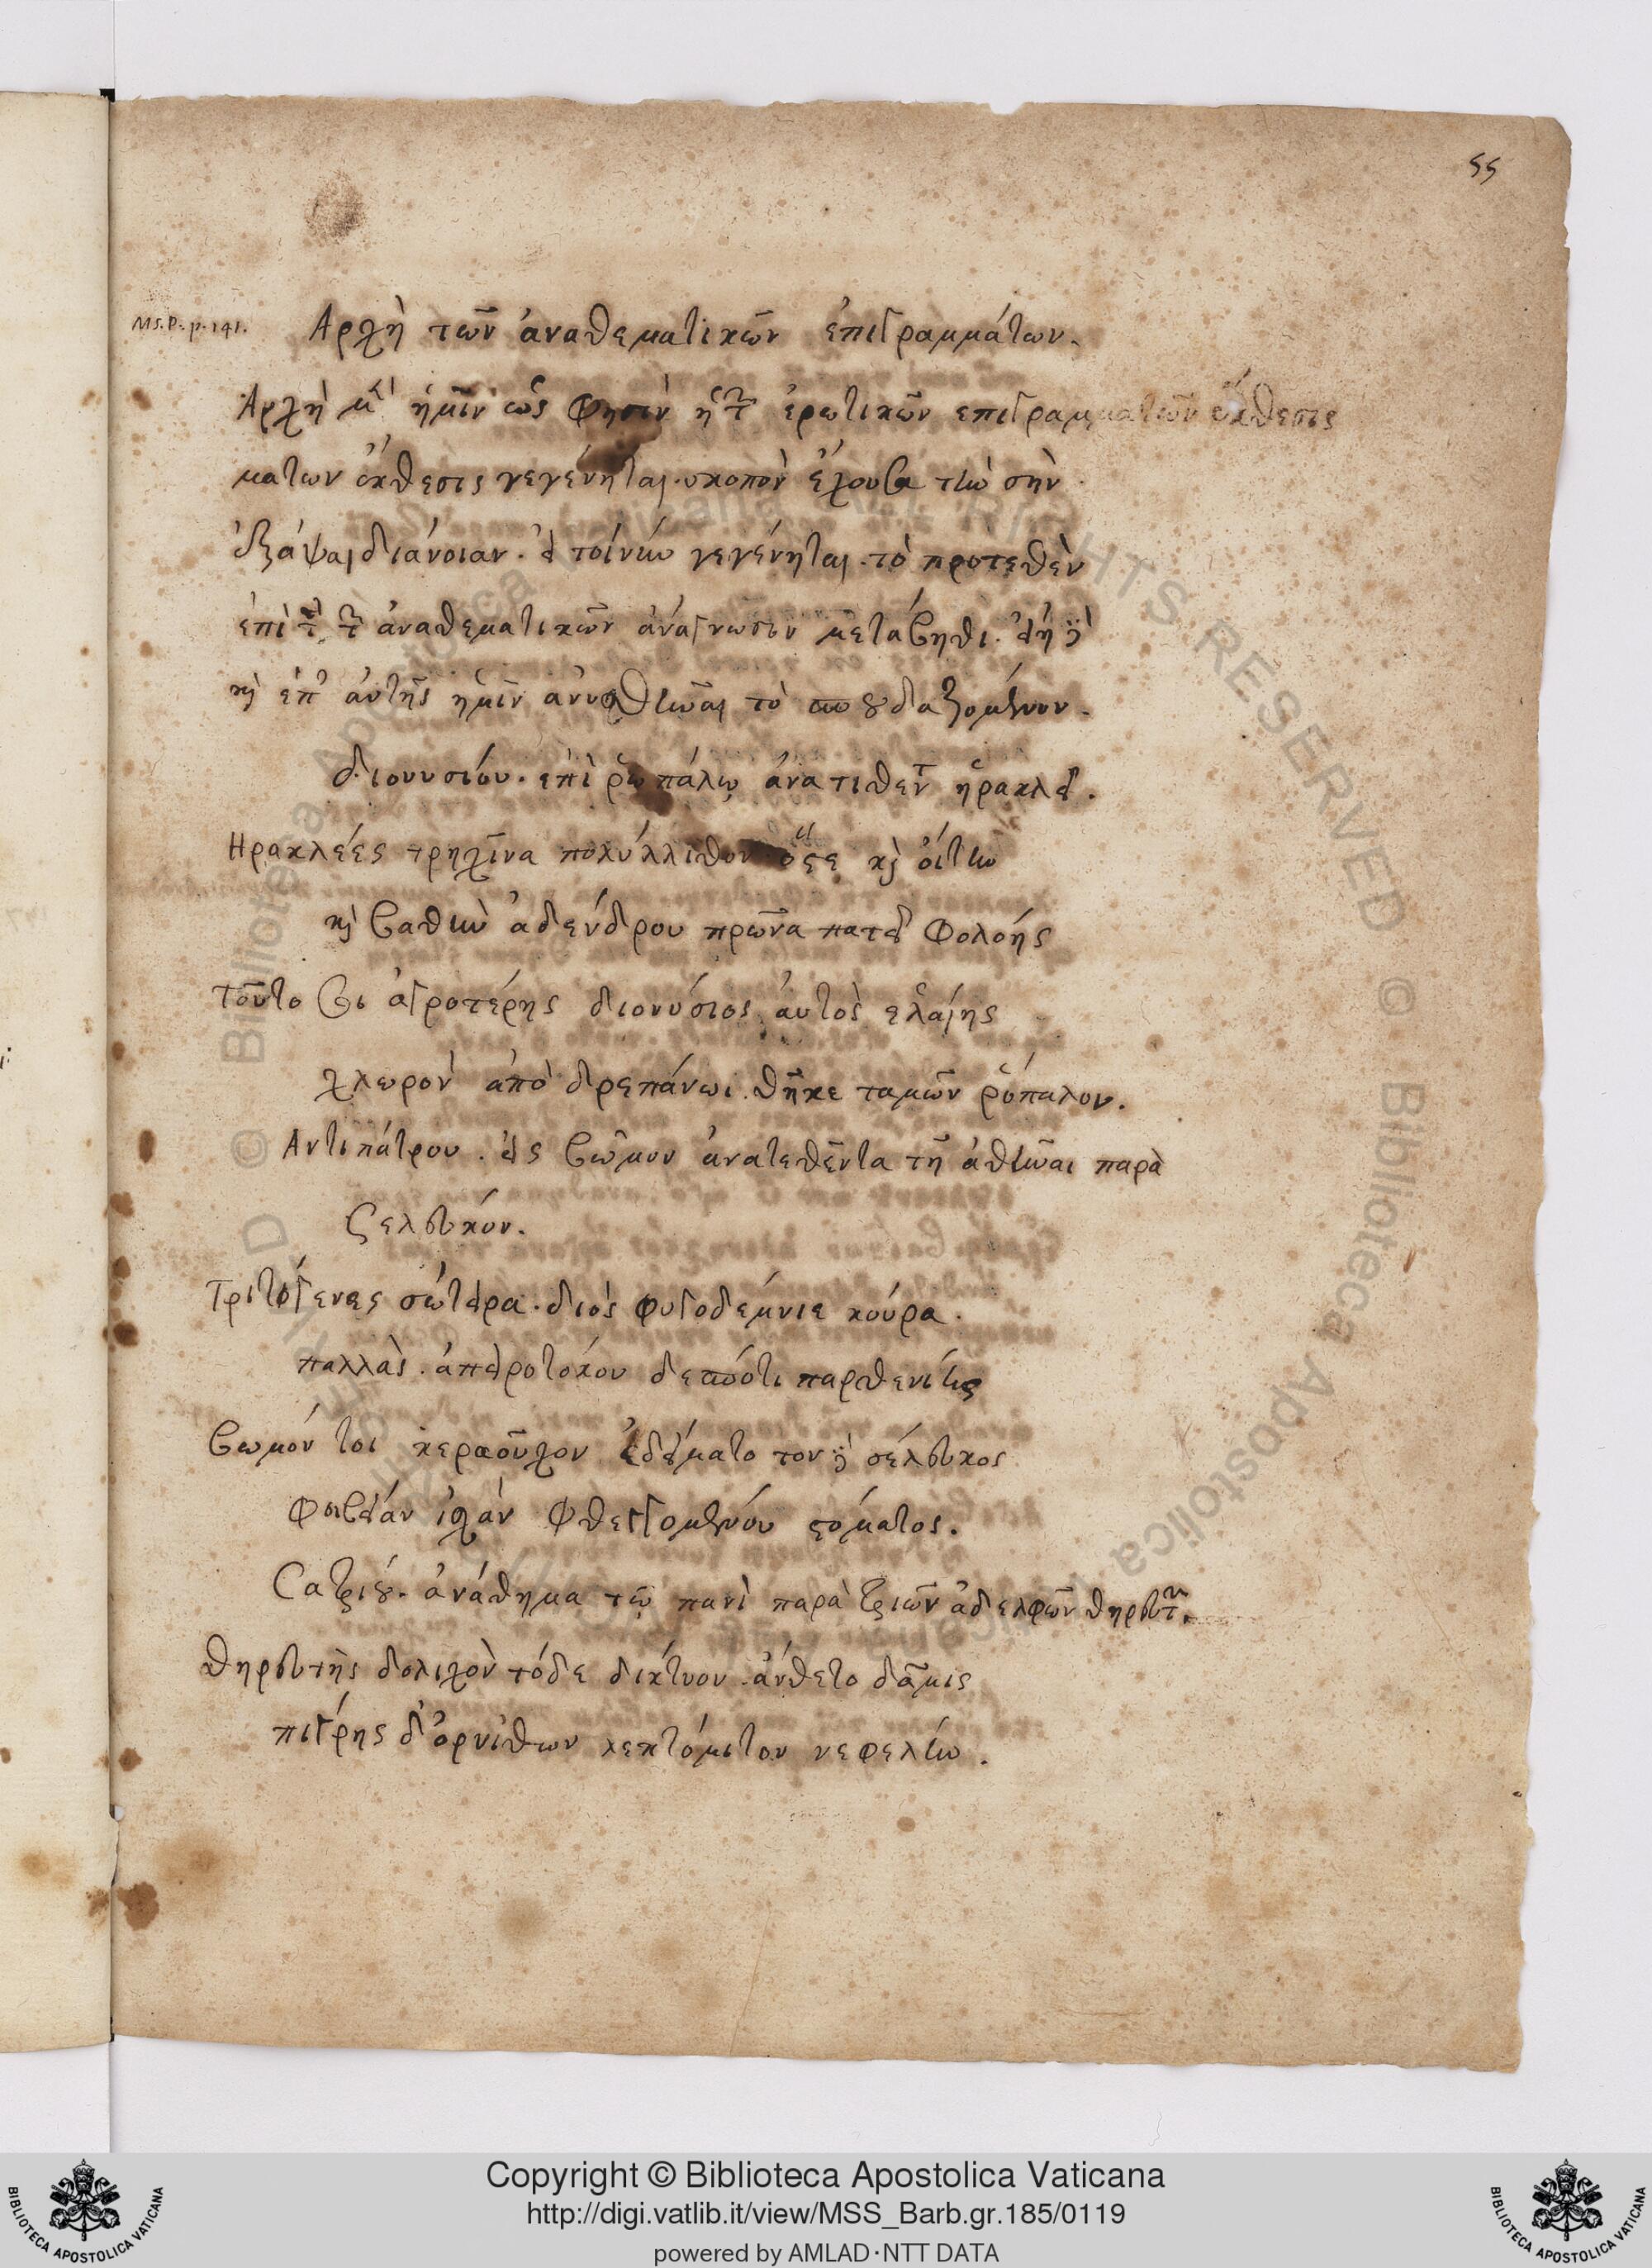 55
MS. P. p. 141.
Αρχὴ τῶν ἀναθεματικῶν ἐπιγραμμάτων.
Αρχὴ μὲν ἡμῖν ὡς φησὶν ἡ τῶν ἐρωτικῶν επιγραμματῶν ἔκθεσις
ματων ἔκθεσις γεγένηται. σκοπὸν ἔχουσα τὴν σὴν
ἐξάψαι διάνοιαν. εἰ τοίνυν γεγένηται. τὸ προτεθὲν
ἐπὶ τὴν τῶν ἀναθεματικῶν ἀνάγνωσιν μετάβηθι. εἴη γὰρ
καὶ ἐπ' ἀυτῆς ἡμῖν ἀνυσθῆναι τὸ σπουδαζομενον.
διονυσίου. ἐπὶ ῥωπάλω ἀνατιθεν ηρακλεῖ.
Ηρακλέες τρηχῖνα πολύλλιθον ὅστε καὶ ὀίτην
καὶ βαθὺν ἀδενδρου πρῶνα πατεῖ Φολοής
Τοῦτο σοι ἀγροτέρης διονύσιος ἀυτὸς ἐλαίης
χλωρὸν ἀπὸ δρεπάνωι. θῆκε ταμῶν ῥόπαλον.
Αντιπάτρου. εἰς βῶμον ἀνατεθέντα τῆ ἀθηναι παρὰ
Σελεύκου.
Τριτογενες σώτειρα. διὸς φυγοδέμνιε κούρα.
παλλὰς. ἀπειροτόκου δεσπότι παρθενίης
βωμόν τοι κεραοῦχον ἐδείματο τον γὰρ σέλευκος
Φοιβείαν ἰαχὰν φθεγγομένου στόματος.
Σατρίου. ἀνάθημα τῶ πανὶ παρὰ τριῶν ἀδελφῶν θηρευτῶν.
θηρευτὴς δολιχὸν τόδε δίκτυον ἄνθετο δᾶμις
πιγρής δ' ὀρνίθων λεπτόμιτον νεφελην.
Copyright © Biblioteca Apostolica Vaticana
http://digi.vatlib.it/view/MSS_Barb.gr.185/0119
powered by AMLAD·NTT DATA
BIBLIOTECA APOSTOLICA VATICANA
BIBLIOTECA APOSTOLICA VATICANA